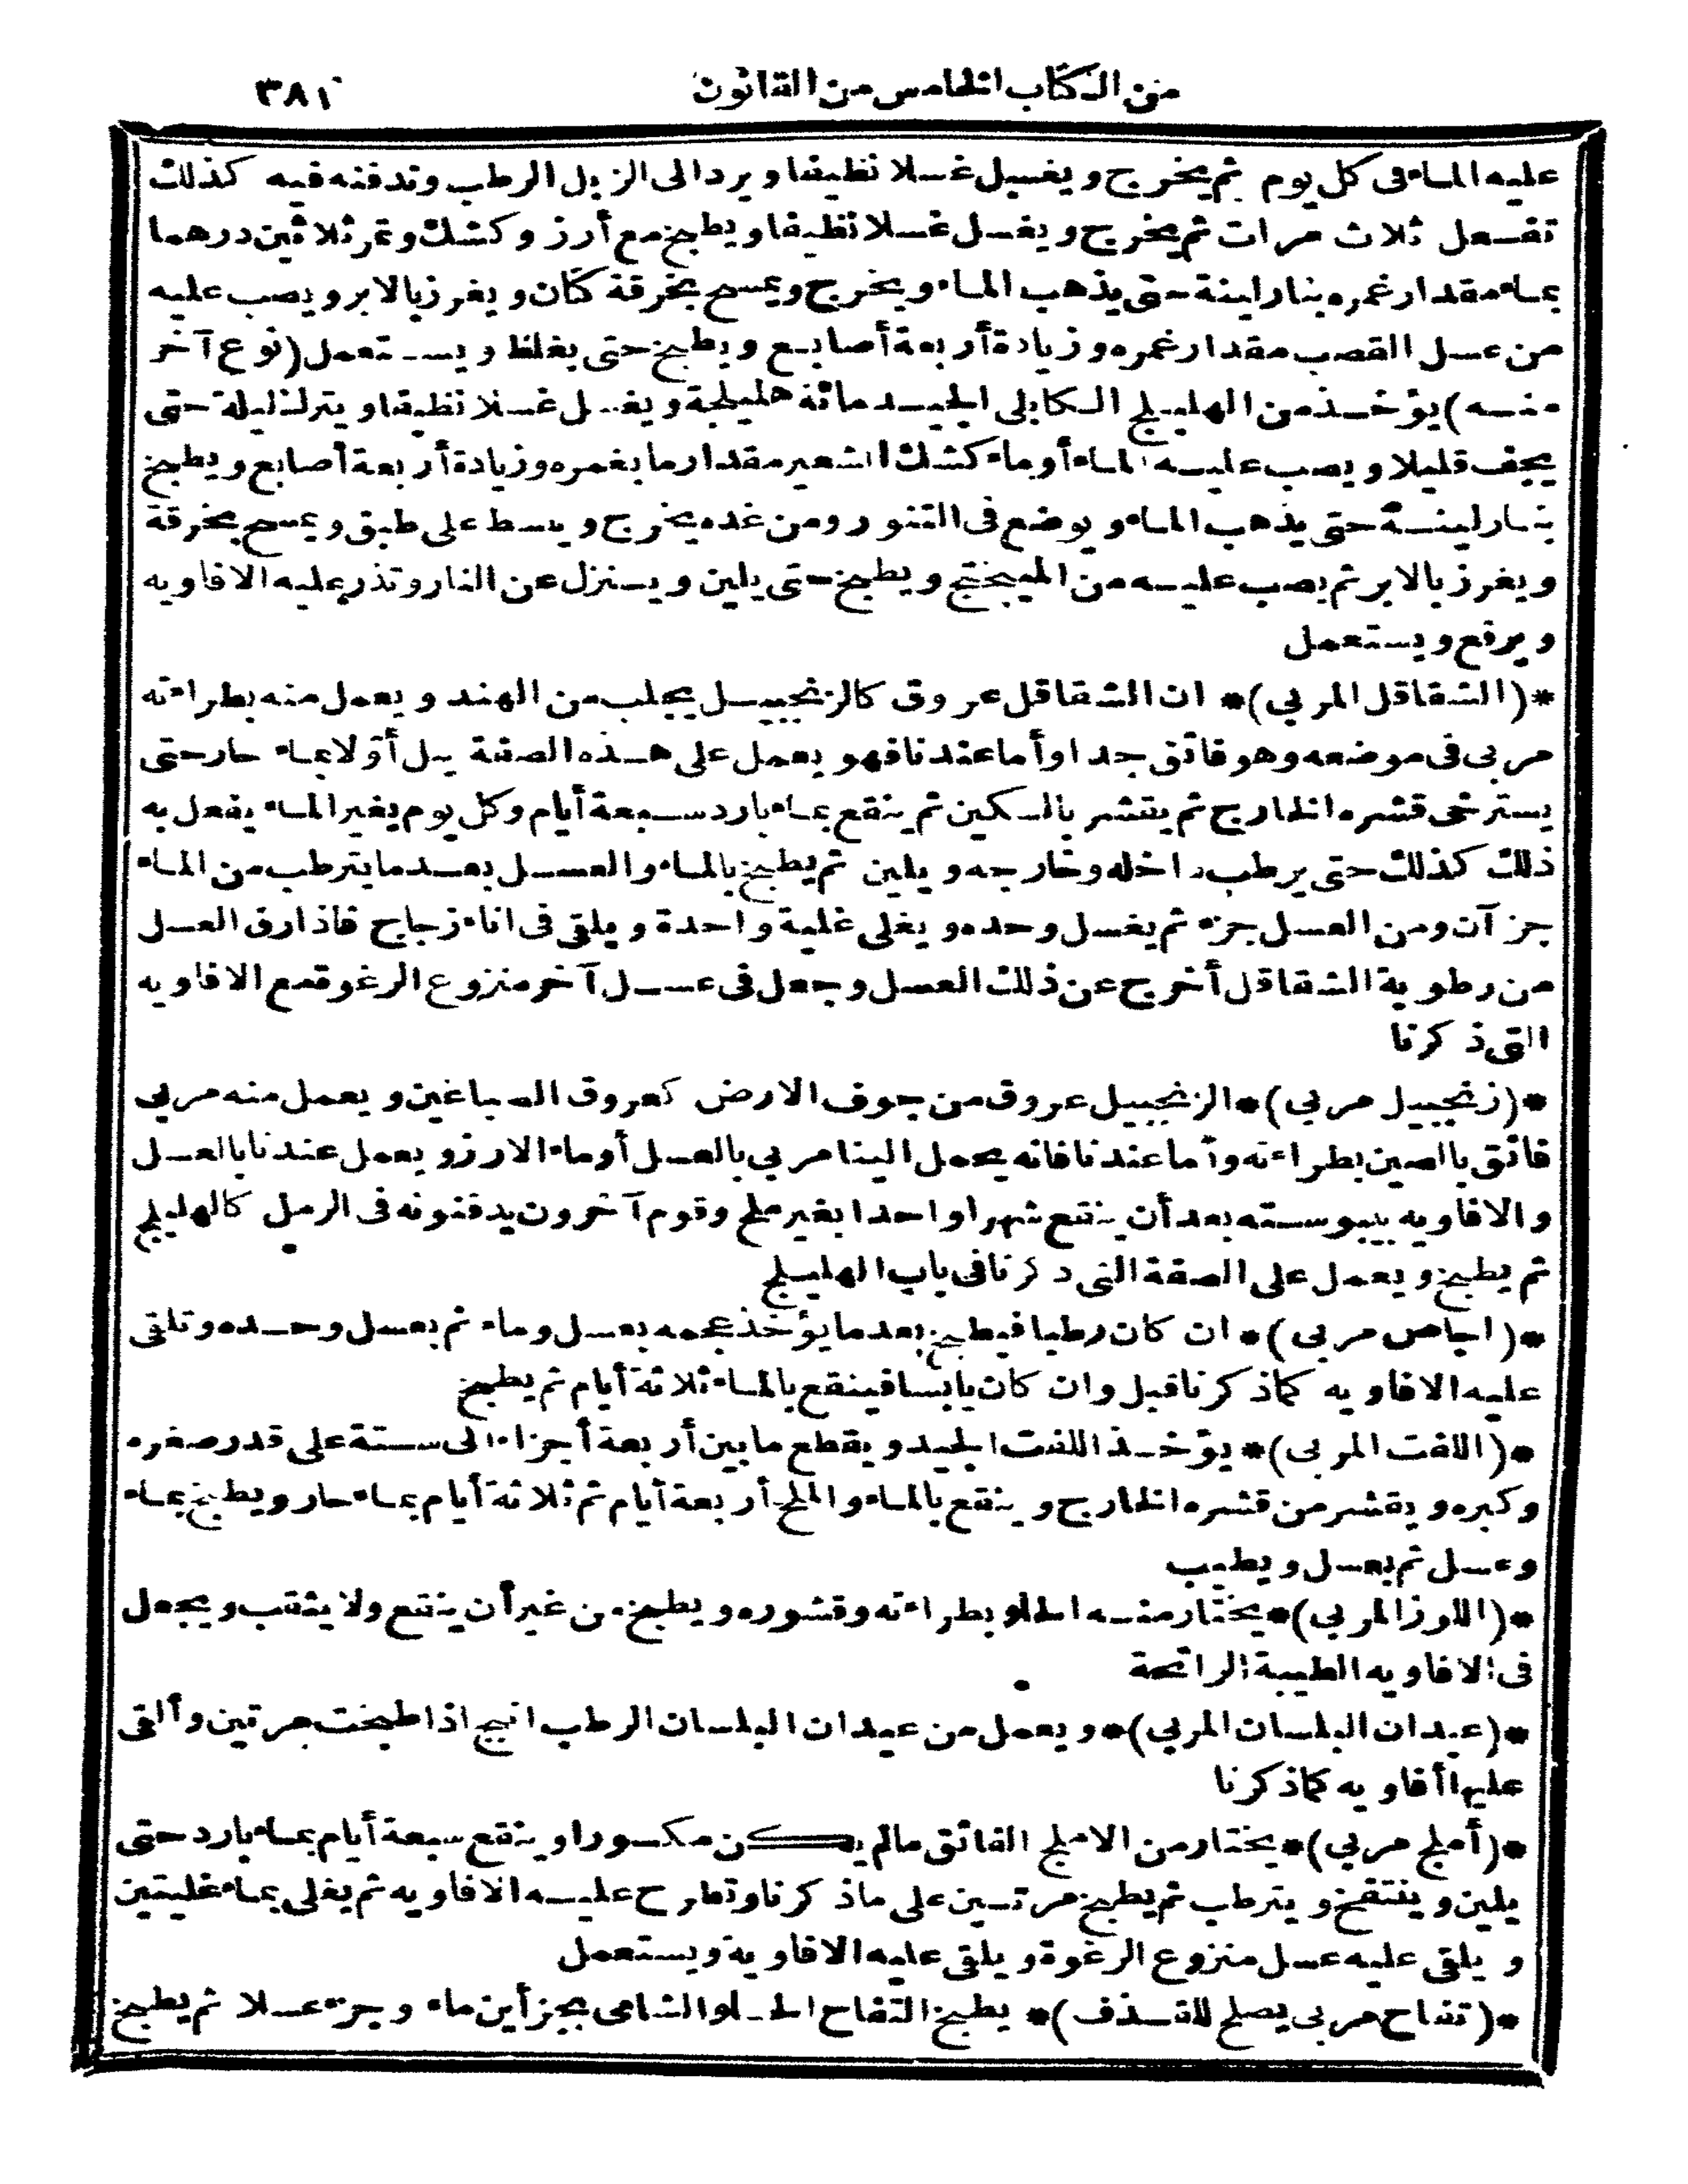 من الكتاب الخامس من القانون ٣٨١
عليه الماء فى كل يوم ثم يخرج ويغسل غسلا نظيفا ويرد الى الزبل الرطب وتدفنه فيه كذلك
تفعل ثلاث مرات ثم يخرج ويغسل غسلا نظيفا ويطبخ مع أرز وكشك وتمر ثلاثين درهما
بماء مقدار غمره بنار لينة حتى يذهب الماء ويخرج ويمسح بخرقة كتان ويغرز بالابر ويصب عليه
من عسل القصب مقدار غمره وزيادة أربعة أصابع ويطبخ حتى يغلظ ويستعمل (نوع آخر
منه) يؤخذ من الهليلج الكابلى الجيد مائة هليلجة ويغسل غسلا نظيفا ويترك ليلة حتى
يجف قليلا ويصب عليه الماء أو ماء كشك الشعير مقدار ما يغمره وزيادة أربعة أصابع ويطبخ
بنار لينة حتى يذهب الماء ويوضع فى التنور ومن غده يخرج ويبسط على طبق ويمسح بخرقة
ويغرز بالابر ثم يصب عليه من الميبختج ويطبخ حتى يلين ويستنزل عن النار وتذر عليه الافاويه
ويرفع ويستعمل
*(الشقاقل المربي)* ان الشقاقل عروق كالزنجبيل يجلب من الهند ويعمل منه بطراءته
مربى فى موضعه وهو فائق جدا وأما عندنا فهو يعمل على هذه الصفة يبل أولا بماء حار حتى
يسترخى قشره الخارج ثم يقشر بالسكين ثم ينقع بماء بارد سبعة أيام وكل يوم يغير الماء يفعل به
ذلك كذلك حتى يرطب داخله وخارجه ويلين ثم يطبخ بالماء والعسل بعد ما يترطب من الماء
جزآن ومن العسل جزء ثم يغسل وحده ويغلى غلية واحدة ويلقى فى اناء زجاج فاذا رق العسل
من رطوبة الشقاقل أخرج عن ذلك العسل وجعل فى عسل آخر منزوع الرغوة مع الافاويه
التى ذكرنا
*(زنجبيل مربي)* الزنجبيل عروق من جوف الارض كعروق الصباغين ويعمل منه مربى
فائق بالصين بطراءته وأما عندنا فانه يحمل الينا مربي بالعسل أو ماء الارز ويعمل عندنا بالعسل
والافاويه بيبوسته بعد أن ينقع شهرا واحدا بغير ملح وقوم آخرون يدفنونه فى الرمل كالهليلج
ثم يطبخ ويعمل على الصفة التى ذكرنا فى باب الهليلج
*(اجاص مربى)* ان كان رطبا فيطبخ بعد ما يؤخذ عجمه بعسل وماء ثم بعسل وحده وتلقى
عليه الافاويه كما ذكرنا قبل وان كان يابسا فينقع بالماء ثلاثة أيام ثم يطبخ
*(اللفت المربى)* يؤخذ اللفت الجيد ويقطع ما بين أربعة أجزاء الى ستة على قدر صغره
وكبره ويقشر من قشره الخارج وينقع بالماء والملح أربعة أيام ثم ثلاثة أيام بماء حار ويطبخ بماء
وعسل ثم بعسل ويطيب
*(اللوز المربي)* يختار منه الحلو بطراءته وقشوره ويطبخ من غير أن ينقع ولا يثقب ويجعل
فى الافاويه الطيبة الرائحة
*(عيدان البلسان المربي)* ويعمل من عيدان البلسان الرطب انبج اذا طبخت مرتين وألقى
عليها أفاويه كما ذكرنا
*(أملج مربي)* يختار من الاملج الفائق مالم يكن مكسورا وينقع سبعة أيام بماء بارد حتى
يلين وينتفخ ويترطب ثم يطبخ مرتين على ما ذكرنا وتطرح عليه الافاويه ثم يغلى بماء غليتين
ويلقى عليه عسل منزوع الرغوة ويلقى عليه الافاوية ويستعمل
*(تفاح مربى يصلح للقذف)* يطبخ التفاح الحلو الشامى بجزأين ماء وجزء عسلا ثم يطبخ